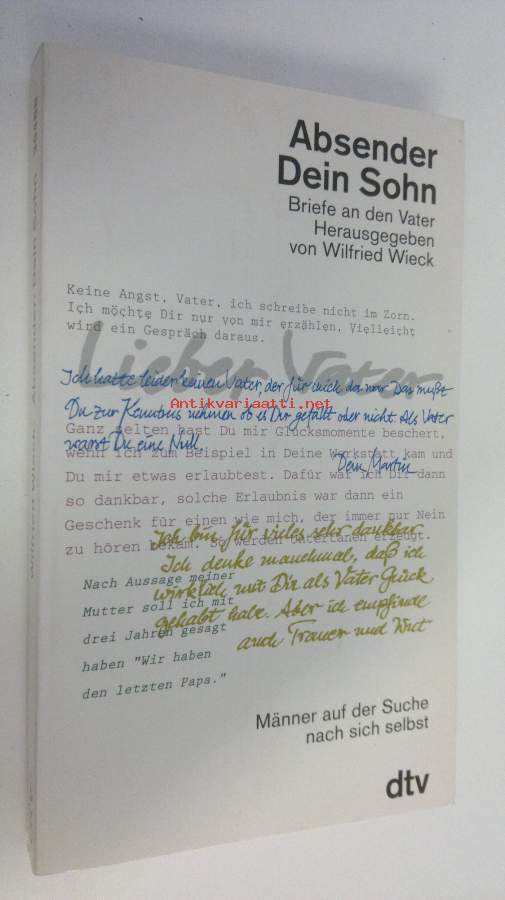 Absender
Dein Sohn
Briefe an den Vater
Herausgegeben
von Wilfried Wieck
Keine Angst, Vater, ich schreibe nicht im Zorn.
Ich möchte Dir nur von mir erzählen. Vielleicht
wird ein Gespräch daraus.
Lieber Vater
Ich hatte leider keinen Vater, der für mich da war. Das mußt
Du zur Kenntnis nehmen ob es Dir gefällt oder nicht. Als Vater
warst Du eine Null.
Dein Martin
Antikvariaatti.net
Ganz selten hast Du mir Glücksmomente beschert,
wenn ich zum Beispiel in Deine Werkstatt kam und
Du mir etwas erlaubtest. Dafür war ich Dir dann
so dankbar, solche Erlaubnis war dann ein
Geschenk für einen wie mich, der immer nur Nein
zu hören bekam. So werden Untertanen erzeugt.
Ich bin für vieles sehr dankbar.
Ich denke manchmal, daß ich
wirklich mit Dir als Vater Glück
gehabt habe. Aber ich empfinde
auch Trauer und Wut
Nach Aussage meiner
Mutter soll ich mit
drei Jahren gesagt
haben "Wir haben
den letzten Papa."
Männer auf der Suche
nach sich selbst
dtv